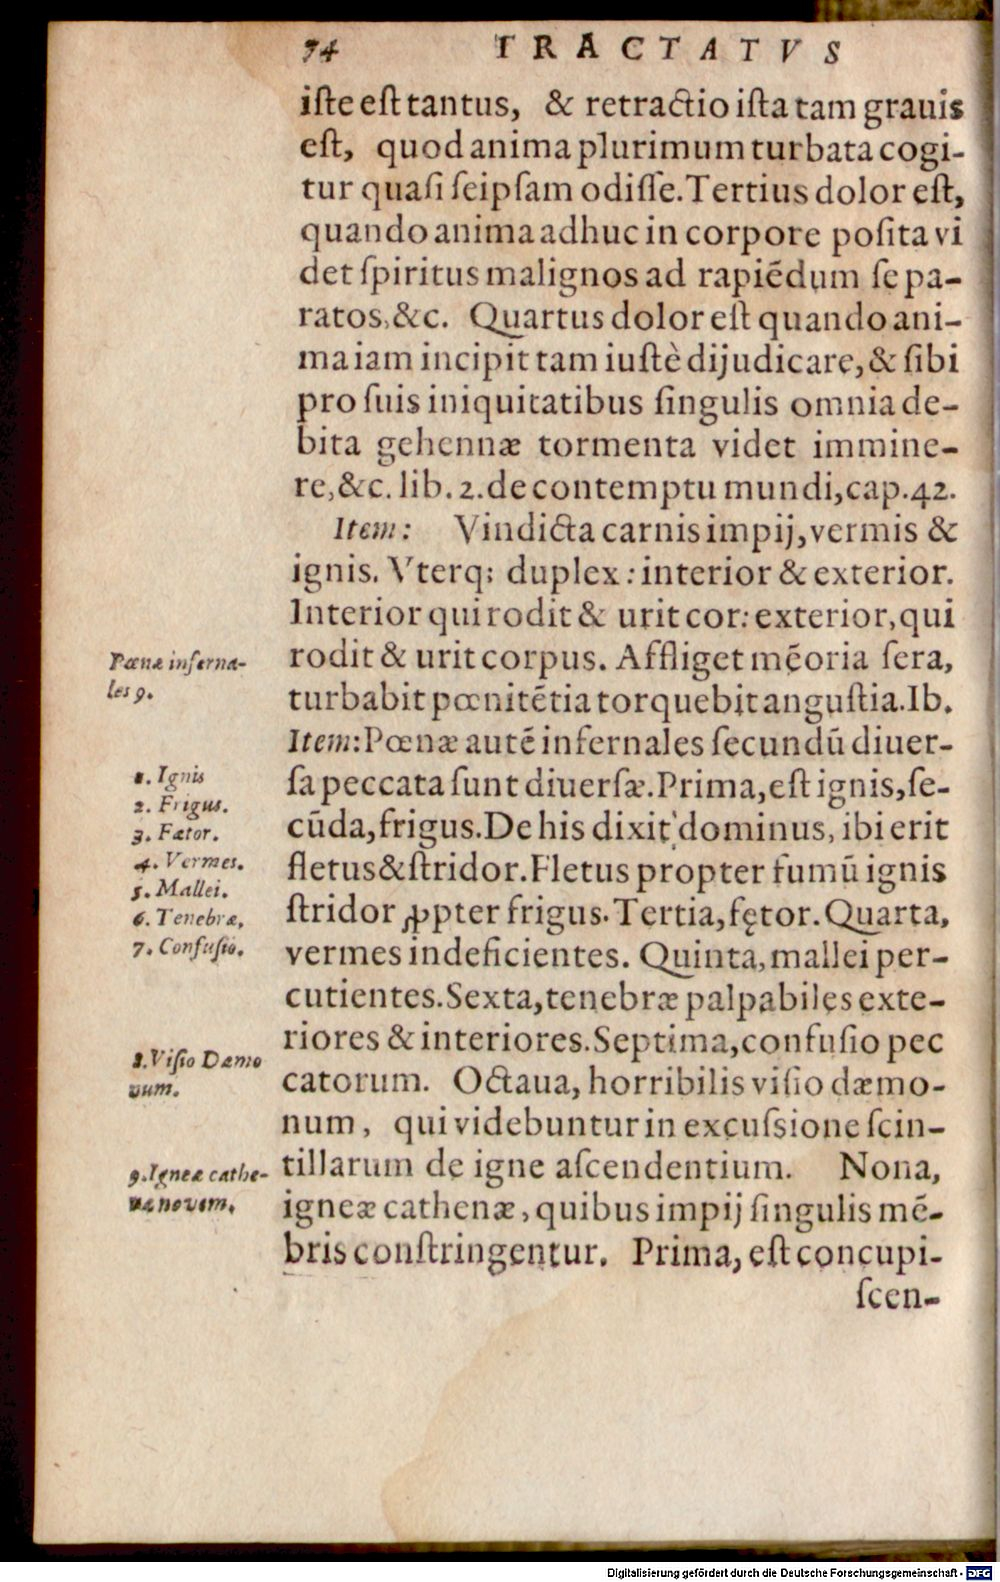 74 TRACTATVS
iste est tantus, & retractio ista tam grauis
est, quod anima plurimum turbata cogi-
tur quasi seipsam odisse. Tertius dolor est,
quando anima adhuc in corpore posita vi
det spiritus malignos ad rapiēdum se pa-
ratos, &c. Quartus dolor est quando ani-
ma iam incipit tam iustè dijudicare, & sibi
pro suis iniquitatibus singulis omnia de-
bita gehennæ tormenta videt immine-
re, &c. lib. 2. de contemptu mundi, cap. 42.
Item: Vindicta carnis impij, vermis &
ignis. Vterq; duplex: interior & exterior.
Interior qui rodit & urit cor: exterior, qui
rodit & urit corpus. Affliget mēoria sera,
turbabit pœnitētia torquebit angustia. Ib.
Item: Pœnæ autē infernales secundū diuer-
sa peccata sunt diuersæ. Prima, est ignis, se-
cūda, frigus. De his dixit dominus, ibi erit
fletus & stridor. Fletus propter fumū ignis
stridor ꝓpter frigus. Tertia, fętor. Quarta,
vermes indeficientes. Quinta, mallei per-
cutientes. Sexta, tenebræ palpabiles exte-
riores & interiores. Septima, confusio pec
catorum. Octaua, horribilis visio dæmo-
num, qui videbuntur in excussione scin-
tillarum de igne ascendentium. Nona,
igneæ cathenæ, quibus impij singulis mē-
bris constringentur. Prima, est concupi-
scen-
Pœnæ inferna-
les 9.
1. Ignis
2. Frigus.
3. Fœtor.
4. Vermes.
5. Mallei.
6. Tenebræ,
7. Confusio.
8. Visio Dæmo
num.
9. Igneæ cathe-
næ novem.
Digitalisierung gefördert durch die Deutsche Forschungsgemeinschaft - DFG